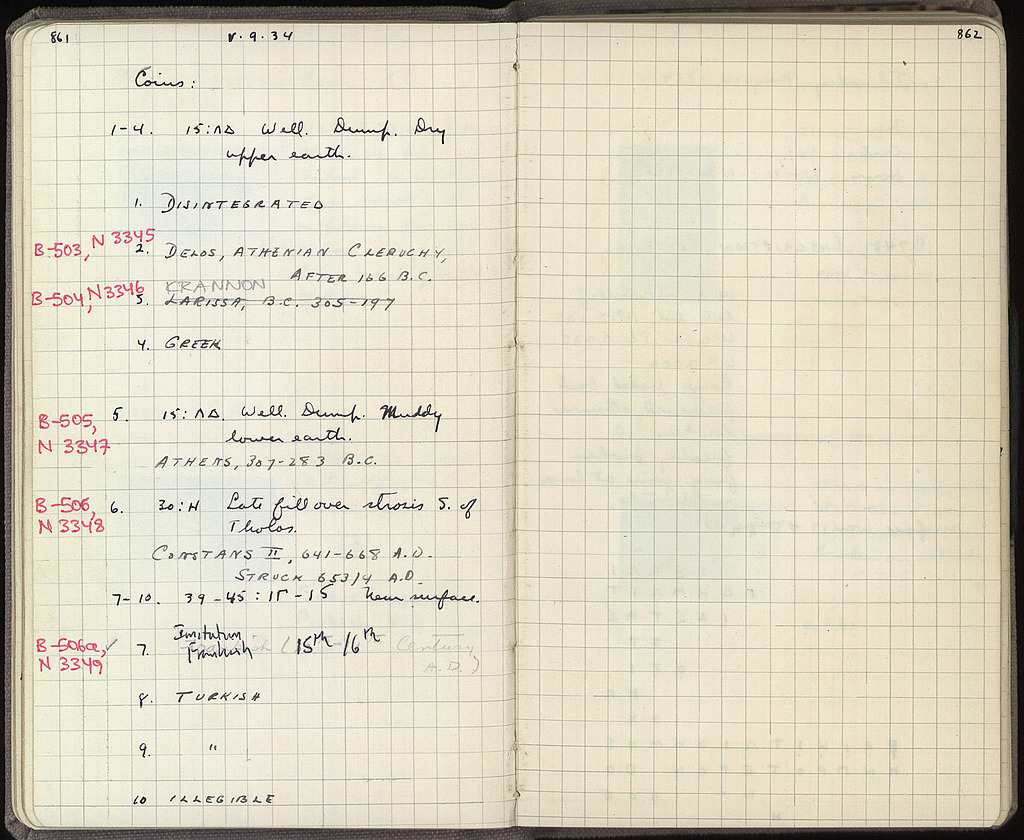 861
v. 9. 34
862
Coins:
1-4. 15:ΛΔ Well. Dump. Dry
upper earth.
1. DISINTEGRATED
B-503, N 3345
2. DELOS, ATHENIAN CLERUCHY,
AFTER 166 B.C.
KRANNON
B-504, N 3346
3. LARISSA, B.C. 305-197
4. GREEK
B-505,
N 3347
5. 15:ΛΔ. Well. Dump. Muddy
lower earth.
ATHENS, 307-283 B.C.
B-506,
N 3348
6. 30:H Late fill over strosis S. of
Tholos.
CONSTANS II, 641-668 A.D.
STRUCK 653/4 A.D.
7-10. 39-45: Near surface.
B-506a, ✓
N 3349
7. Imitation
Frankish (15th /6th Century
A.D.)
8. TURKISH
9. "
10 ILLEGIBLE